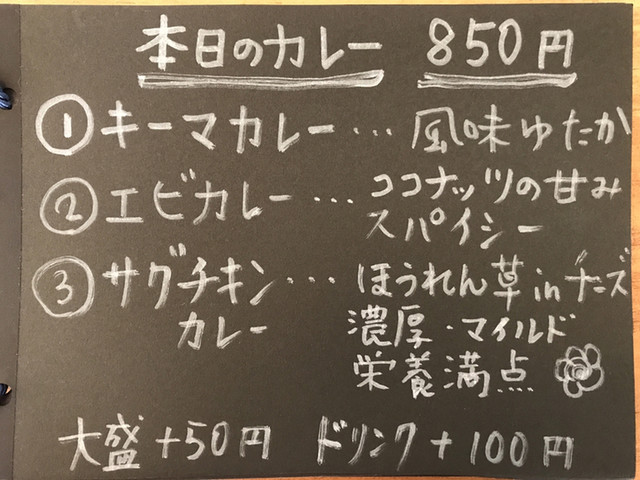 本日のカレー 850円
① キーマカレー… 風味ゆたか
② エビカレー… ココナッツの甘み
スパイシー
③ サグチキン… ほうれん草inチーズ
カレー 濃厚・マイルド
栄養満点
大盛+50円 ドリンク+100円